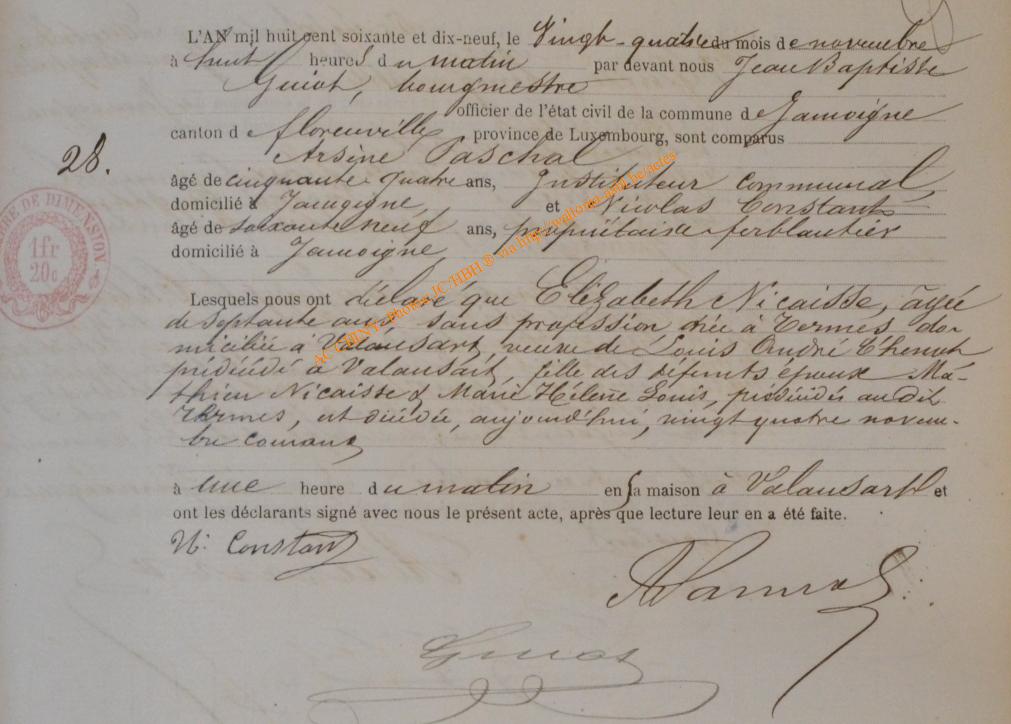 L'AN mil huit cent soixante et dix-neuf, le Vingt-quatre du mois de novembre
à huit heures du matin par devant nous Jean Baptiste
Guiot, bourgmestre
officier de l'état civil de la commune de Jamoigne
canton de florenville, province de Luxembourg, sont comparus
Arsène Paschal
28.
âgé de cinquante quatre ans, Instituteur communal,
domicilié à Jamoigne, et Nicolas Constant
âgé de soixante neuf ans, propriétaire ferblantier
domicilié à Jamoigne
TIMBRE DE DIMENSION
1fr
20c
AC CHINY - Photos JC/HBH ® via http://wallonia.arch.be/actes
Lesquels nous ont déclaré que Elizabeth Nicaisse, âgée
de septante ans sans profession née à Termes do-
miciliée à Valansart, veuve de Louis André
prédécédé à Valansart, fille des défunts époux Ma-
thieu Nicaisse & Marie Hélène Louis, prédécédés au dit
Termes, est décédée, aujourd'hui, vingt quatre novem-
bre courant
à une heure du matin en sa maison à Valansart et
ont les déclarants signé avec nous le présent acte, après que lecture leur en a été faite.
N. Constant
Guiot